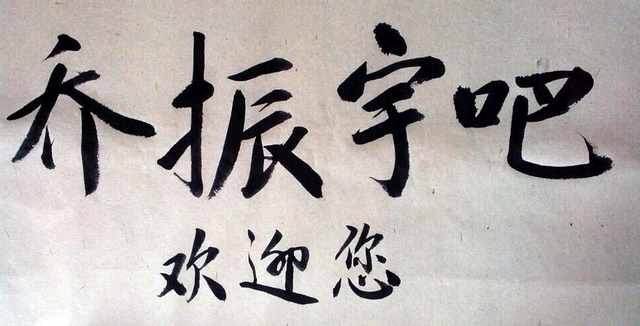 乔振宇吧
欢迎您